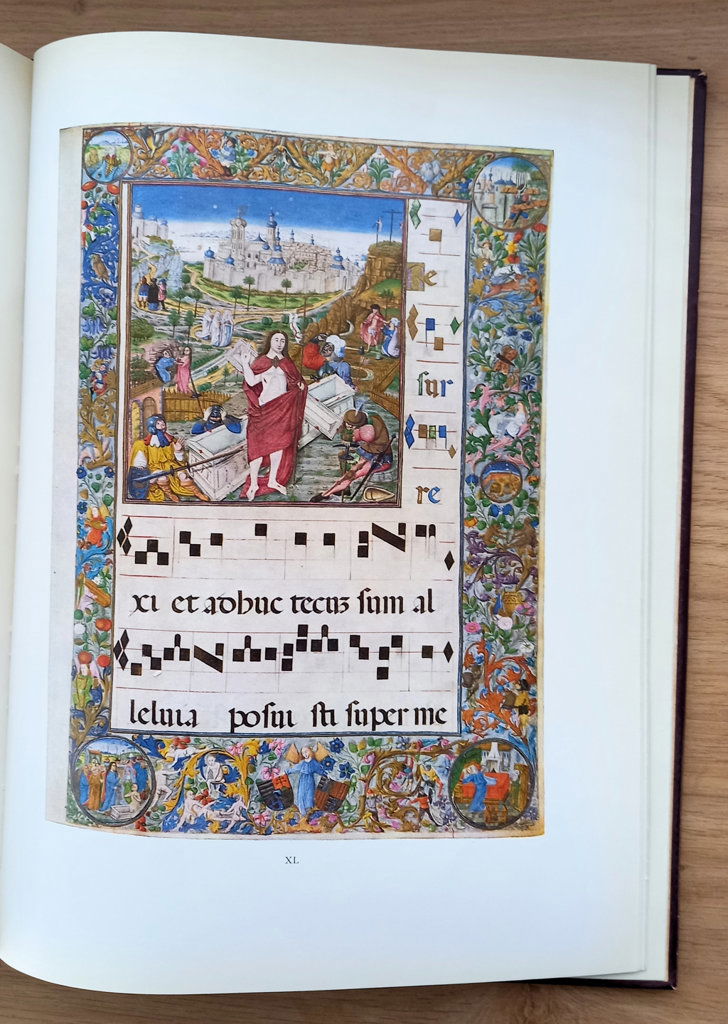 Re
sur
re
xi et adhuc tecuz sum al
leluia posui sti super me
XL